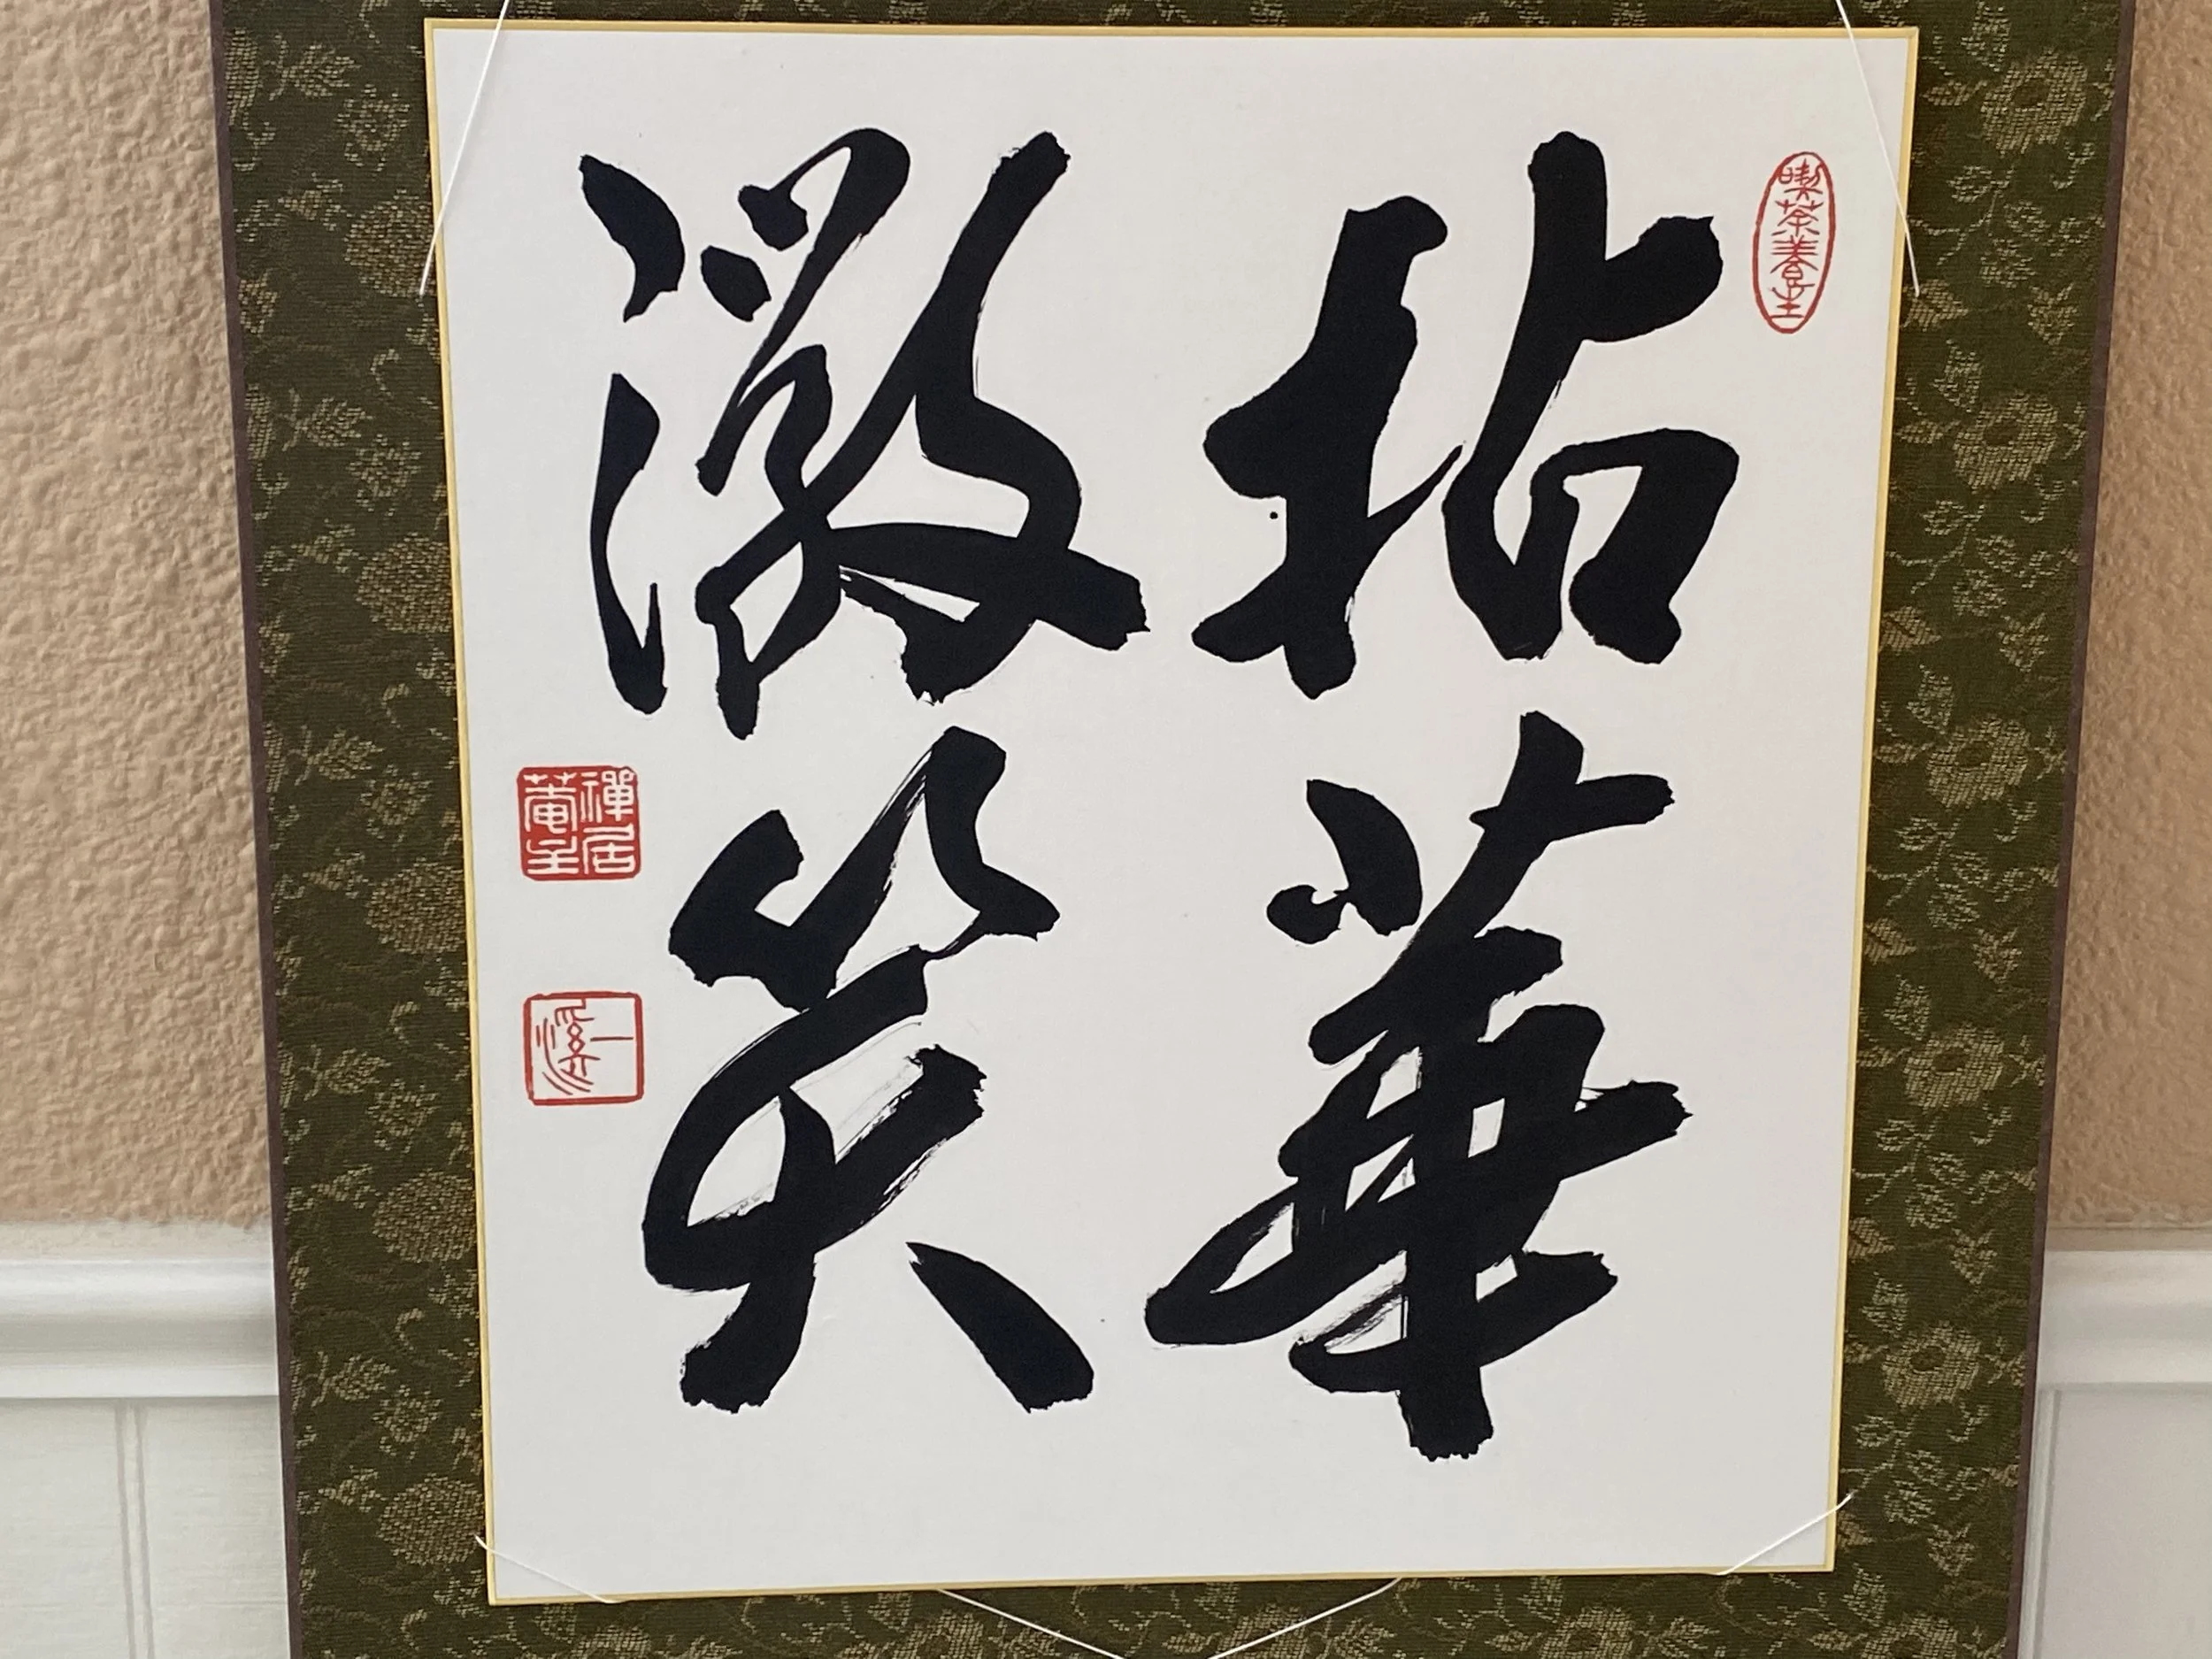 喫茶養生
拈華
微笑
禅居菴主
一溪